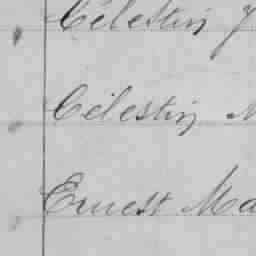 Célestin J
Célestin M
Ernest Ma